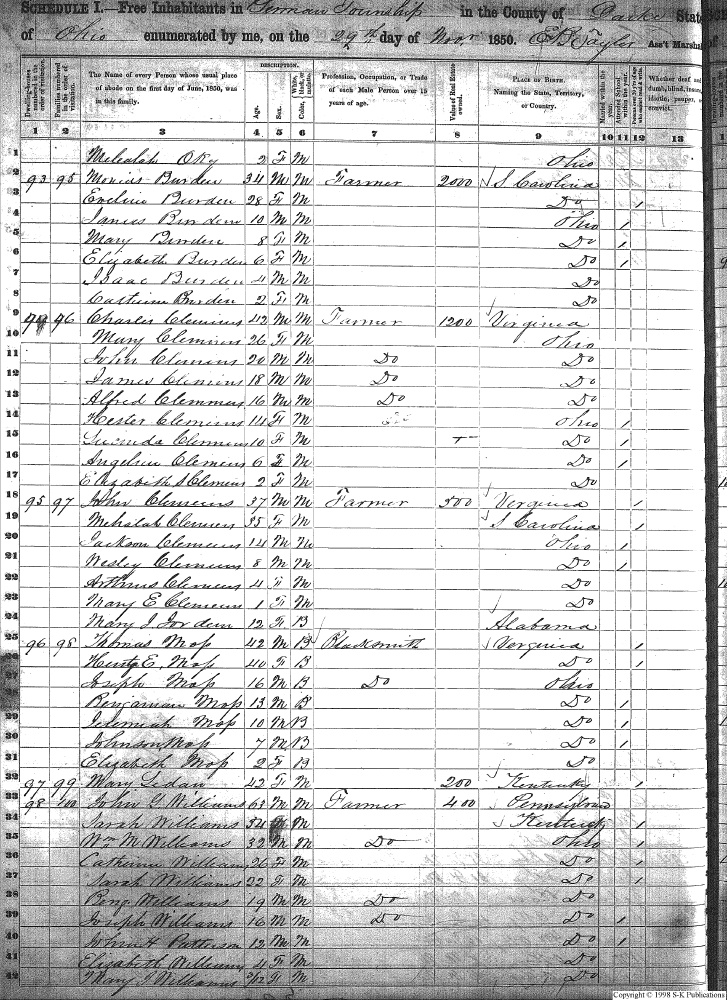 SCHEDULE I.—Free Inhabitants in German Township in the County of Darke State
of Ohio enumerated by me, on the 29th day of Novr 1850. E B Taylor Ass't Marshal
DESCRIPTION.
Dwelling-houses numbered in the order of visitation.
Families numbered in the order of visitation.
The Name of every Person whose usual place of abode on the first day of June, 1850, was in this family.
Age.
Sex.
Color, {White, black, or mulatto.
Profession, Occupation, or Trade of each Male Person over 15 years of age.
Value of Real Estate owned.
PLACE OF BIRTH. Naming the State, Territory, or Country.
Married within the year.
Attended School within the year.
Whether deaf and dumb, blind, insane, idiotic, pauper, or convict.
1 2 3 4 5 6 7 8 9 10 11 12 13
1 Mehalah Oky 2 F M Ohio
2 93 95 Burden 34 M M Farmer 2000 S Carolina /
3 Eveline Burden 28 F M Do /
4 James Burden 10 M M Ohio /
5 Mary Burden 8 F M Do /
6 Elizabeth Burden 6 F M Do /
7 Isaac Burden 4 M M Do
8 Burden 2 F M Do
9 96 Charles Clemens 42 M M Farmer 1200 Virginia
10 Mary Clemens 26 F M Ohio
11 John Clemens 20 M M Do Do
12 James Clemens 18 M M Do Do
13 Alfred Clemmens 16 M M Do Do
14 Hester Clemens 14 F M Ohio /
15 Lucinda Clemmens 10 F M Do /
16 Angeline Clemens 6 F M Do /
17 Elizabeth S Clemens 2 F M Do
18 95 97 John Clemens 37 M M Farmer 500 Virginia /
19 Mehalah Clemens 35 F M S Carolina /
20 Jackson Clemens 14 M M Ohio /
21 Wesley Clemens 8 M M Do /
22 Clemens 4 F M Do
23 Mary E Clemens 1 F M Do
24 Mary J Jordan 12 F B Alabama
25 96 98 Thomas Moss 42 M B Blacksmith Verginia /
26 E. Moss 40 F B Do /
27 Joseph Moss 16 M B Do Ohio
28 Bengaman Moss 13 M B Do /
29 Jeremiah Moss 10 M B Do /
30 Johnson Moss 7 M B Do /
31 Elizabeth Moss 2 F B Do
32 97 99 Mary 42 F M 200 Kentucky /
33 98 100 John G Williams 63 M M Farmer 400 Pennsylvania
34 Sarah Williams 54 M Kentucky /
35 Wm M Williams 32 M M Do Ohio /
36 Catherine Williams 26 F M Do /
37 Sarah Williams 22 F M Do /
38 Benj Williams 19 M M Do Do
39 Joseph Williams 16 M M Do Do /
40 John H Patterson 12 M M Do /
41 Elizabeth Williams 4 F M Do
42 Mary J Williams F M Do
Copyright © 1998 S-K Publications